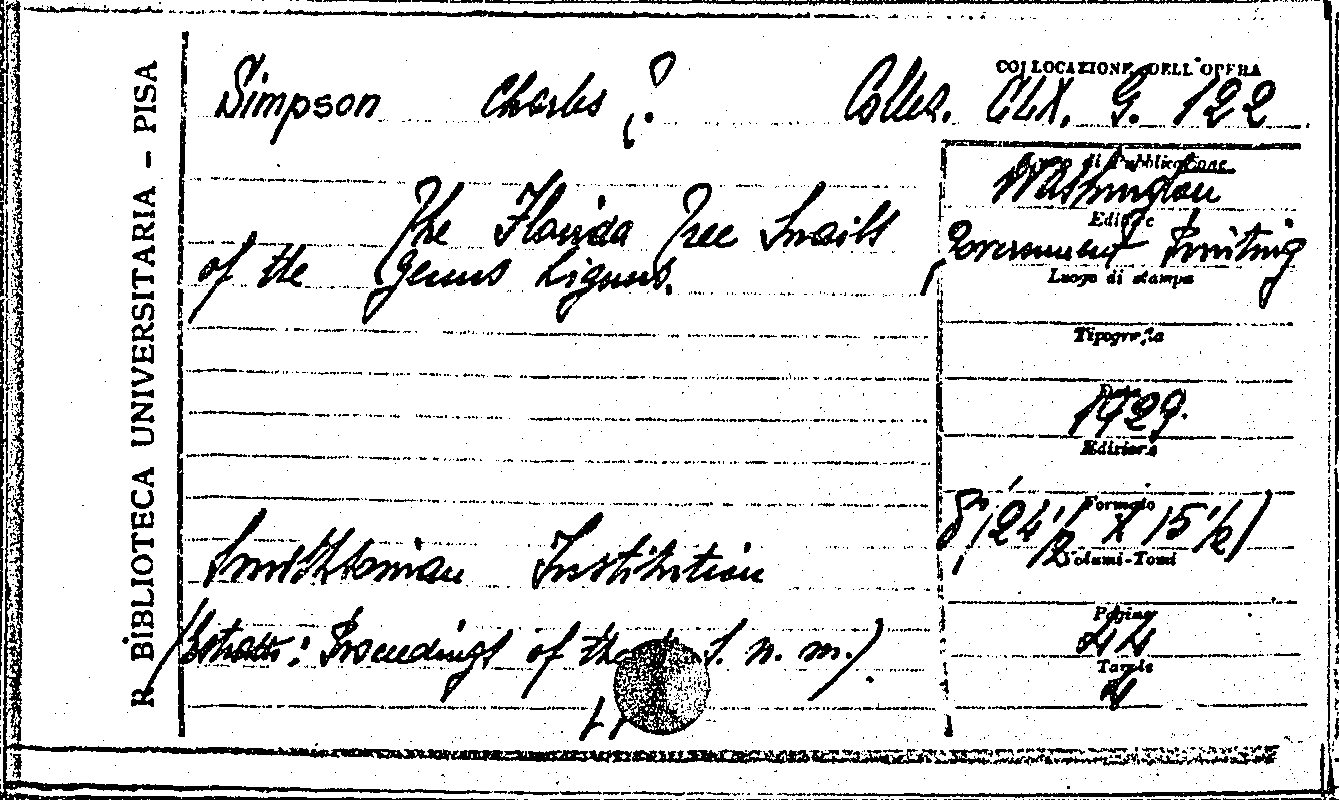 R. BIBLIOTECA UNIVERSITARIA - PISA
COLLOCAZIONE DELL'OPERA
Simpson Charles ?. Collez. CLX. G. 122
Luogo di Pubblicazione
Washington
The Florida Tree Snails
Editore
Government Printing
of the genus Liguus.
Luogo di stampa
Tipografia
1929.
Edizione
Formato
8° (24 1/2 X 15 1/2)
Volumi-Tomi
Smithsonian Institution
Pagine
44
(Estratto: Proceedings of the S. N. M.).
Tavole
4